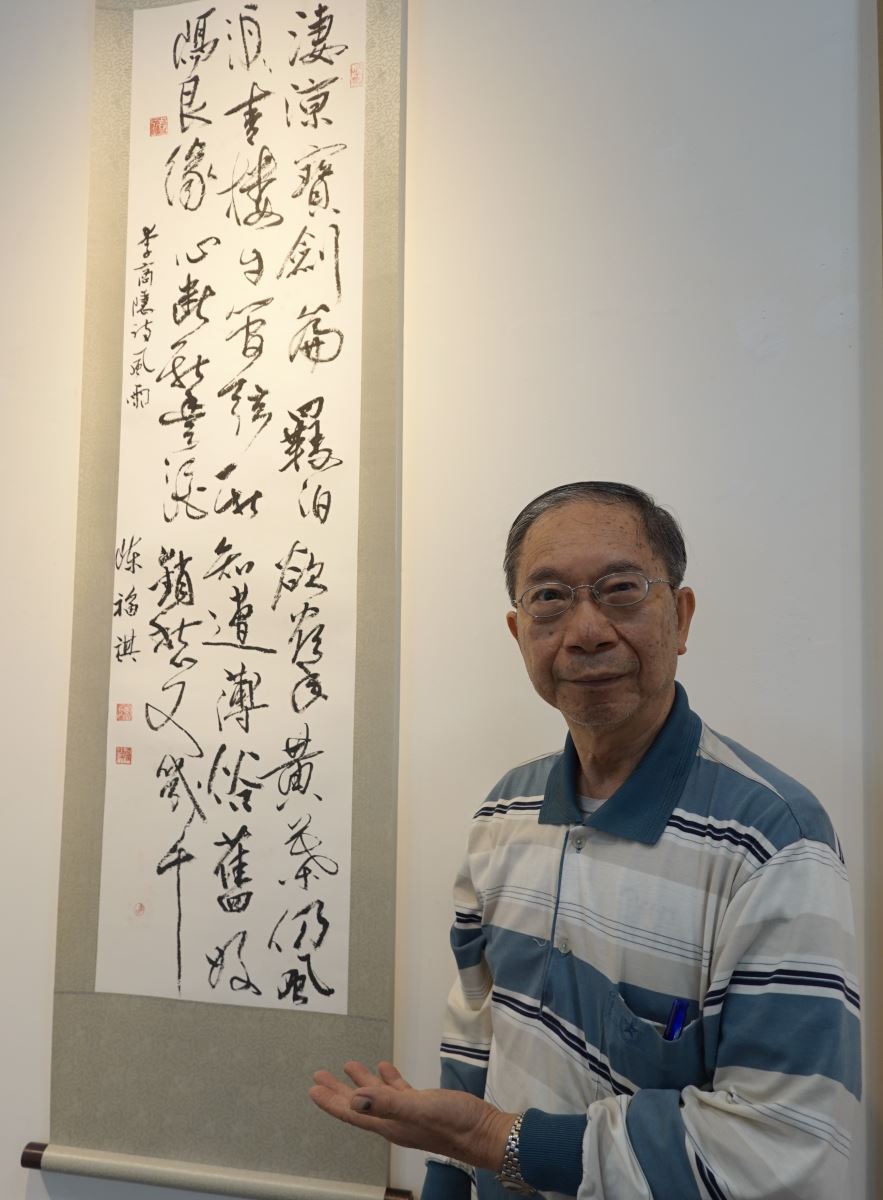 淒涼寶劍篇羈泊欲窮年黃葉仍風
青樓自管弦新知遭薄俗舊好
隔良緣心斷新豐銷愁又幾千
李商隱诗風雨
陳福祺